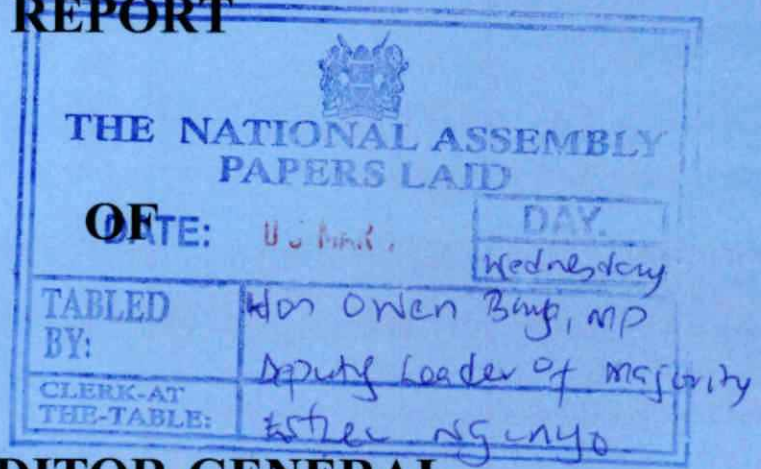 REPORT
THE NATIONAL ASSEMBLY
PAPERS LAID
OF
DATE:
DAY.
Wednesday
TABLED BY:
Hon Owen Baya, MP
Deputy Leader of Majority
CLERK-AT THE-TABLE:
AUDITOR-GENERAL